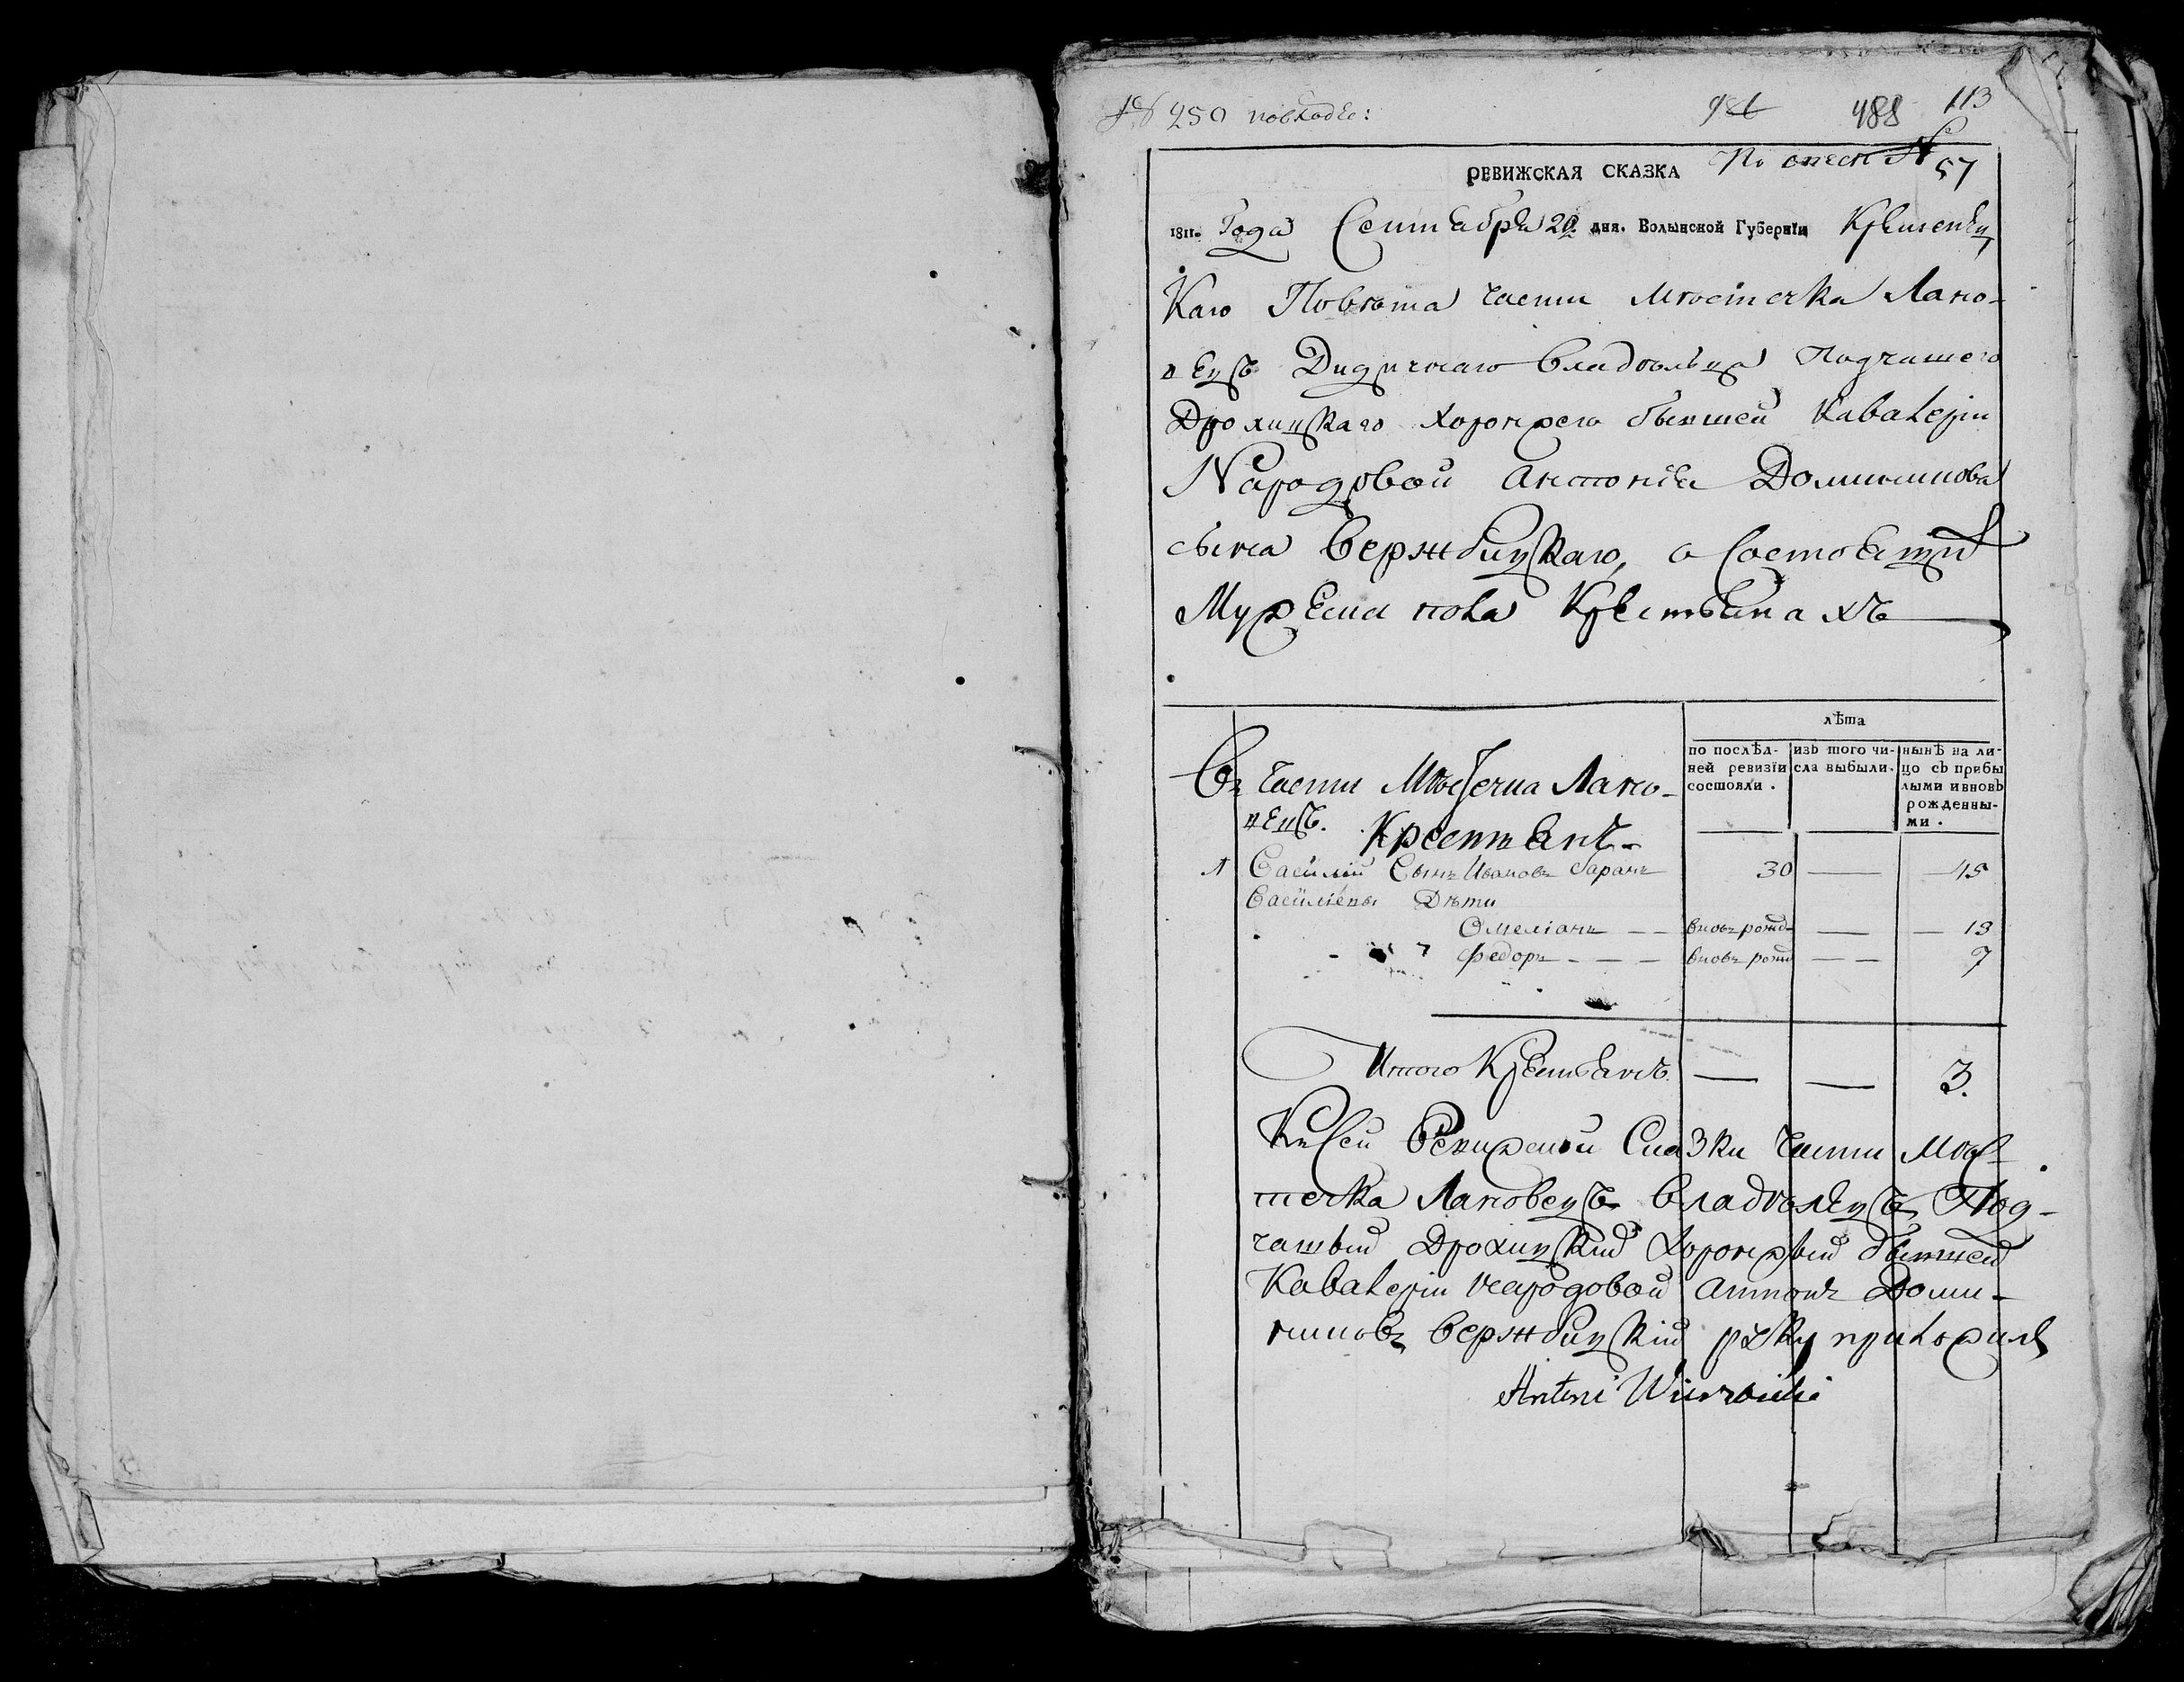 № 250 повходѣ:
488 113
По описи № 57
РЕВИЖСКАЯ СКАЗКА
1811. Года Сентября 20 дня. Волынской Губернїи Кременец
Каго Повѣта Части Мѣстечка Лано-
вецъ Дидичнаго Владѣльца Подчашего
Дрохицкаго Хоронжего бывшей Кавалеріи
Народовой Антонія Доминикова
сына Вержбицкаго, о Состоящи
Мужеска пола Крестьянахъ
лѣта
по послѣд-
ней ревизїи
состояли.
изЪ того чи-
сла выбыли.
нынѣ на ли-
цо сЪ прибы
лыми ивновь
рожденны-
ми.
Въ Части Мѣстечка Лано-
вецъ. Крестьянъ
1 Василій Сынъ Ивановъ Баранъ 30 — 45
Васильевы Дѣти
Омеліанъ — — вновь рожд — — 13
Федоръ - — — вновь рожд — — 7
Итого Крестьянъ. — — 3.
Къ Сей Ревижской Сказки Части Мѣс-
течка Лановецъ Владѣлецъ Под-
чашый Дрохицкий Хоронжый бывшей
Кавалеріи народовой Антонъ Доми-
никовъ Вержбицкій руку приложилъ
Antoni Wierzbicki